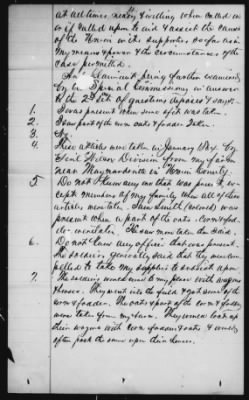 at all times ready & willing when called on
or if called upon to aid & assist the cause
of the Union or its supporters so far as in
my means & power & the circumstances of the
case permitted.
And Claimant being further examined
by the Special Commissioner in answer
to the 2nd set of questions deposes & says:
1. I was present when some of it was taken
2. Saw part of the corn oats & fodder taken
3. No.
4. These articles were taken in January by
Genl Division from my farm
near Maynardville in Union County.
5. Do not know any one that was present ex-
cept members of my family when all of these
articles were taken. Smith (colored) was
present when a part of the oats corn & fod-
der were taken.
6. Do not know any officer that was present.
The soldiers generally said that they were com-
pelled to take my supplies to subsist upon.
7. The soldiers came to my place with wagons
& horses. They went into the field & got some of the
corn & fodder. The oats & part of the corn & fodder
were taken from my barn. They loaded up
their wagons with corn fodder & oats &
often pack the same upon their horses.